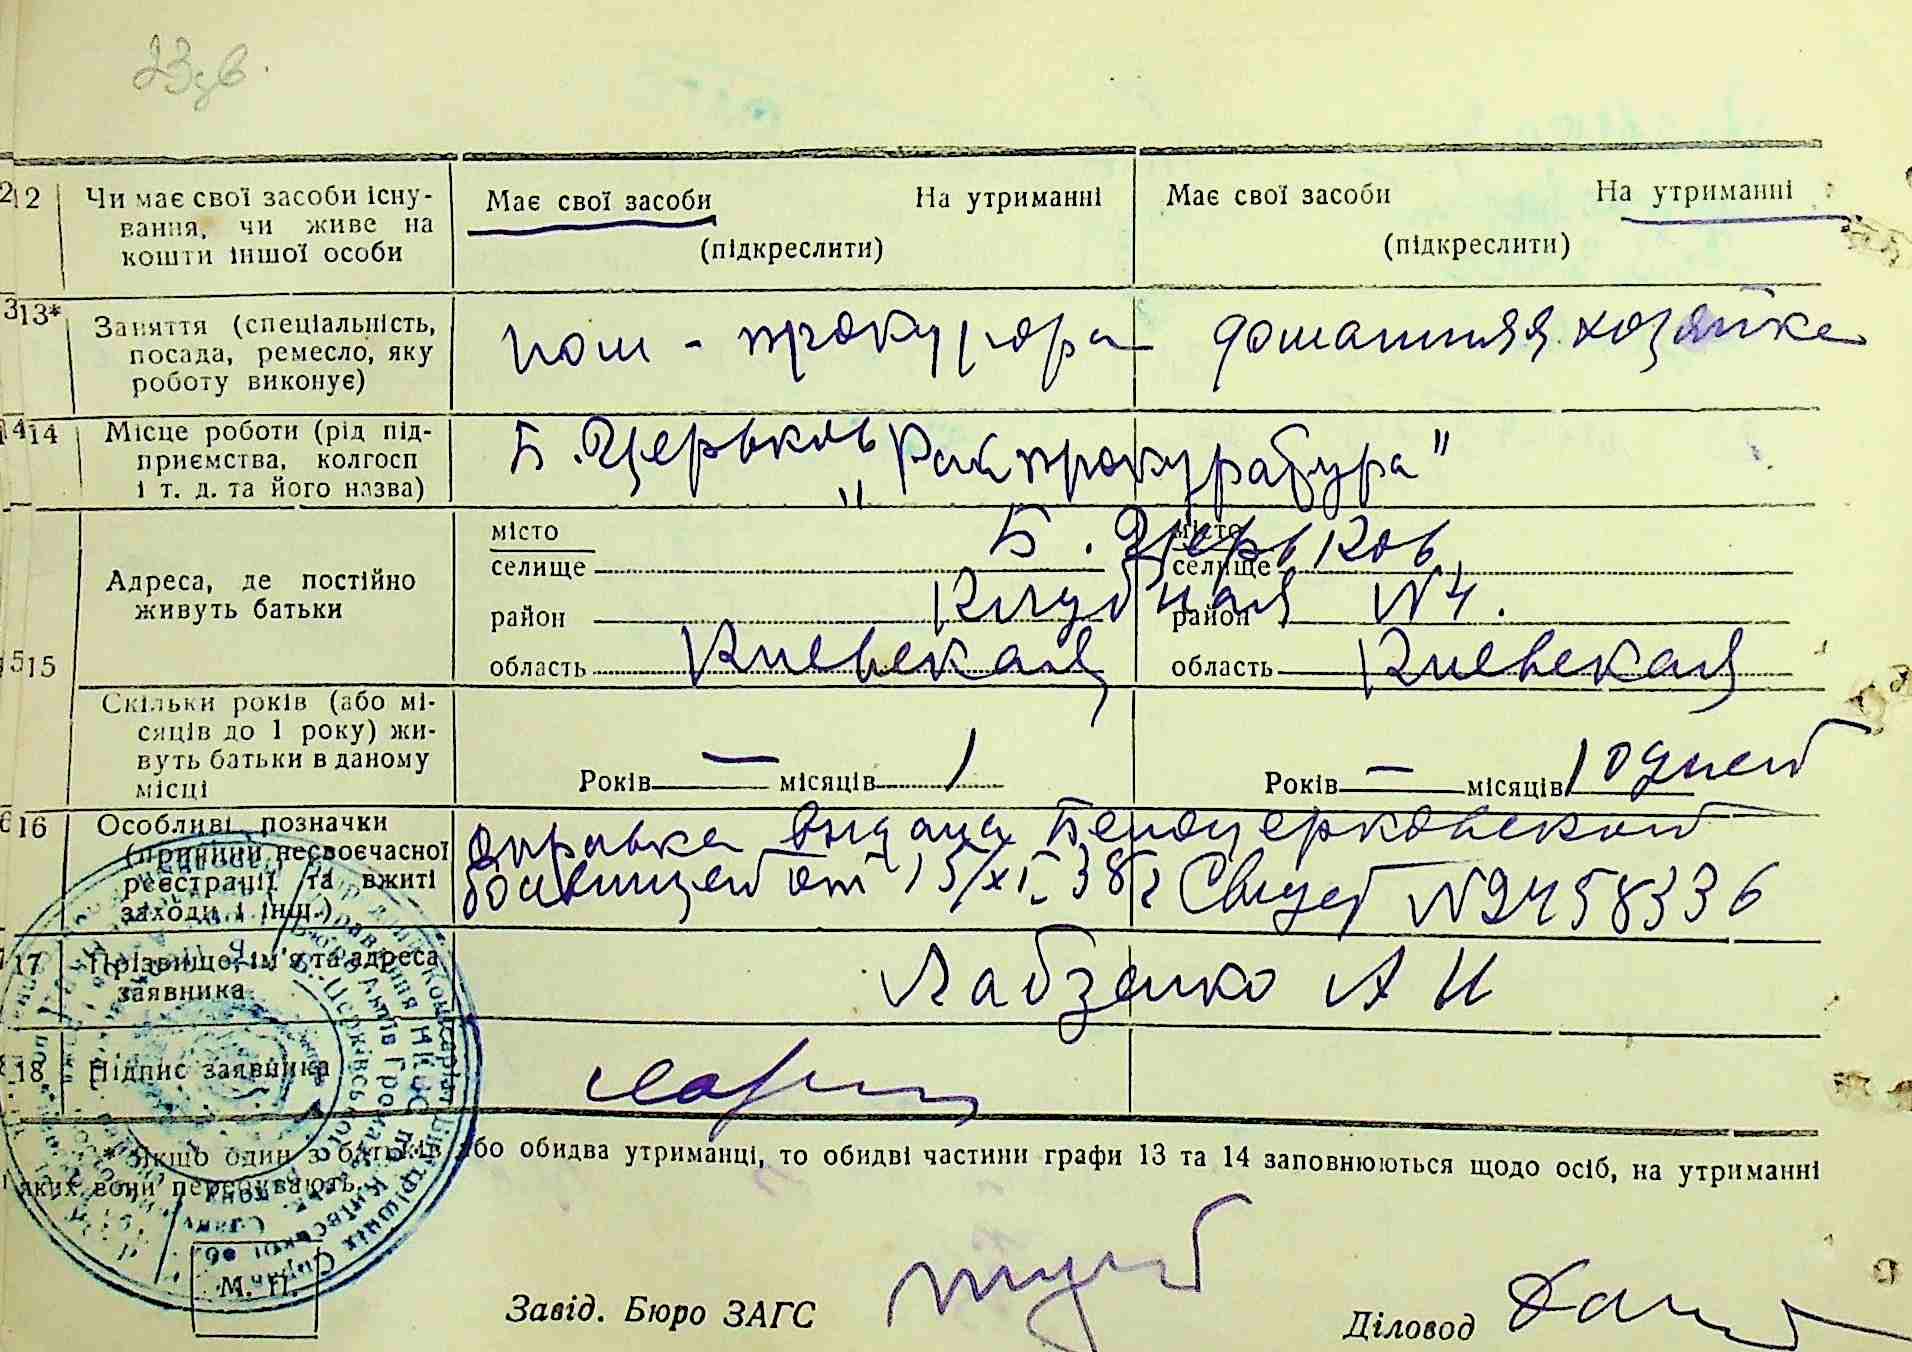 12 Чи має свої засоби існу-
вання, чи живе на
кошти іншої особи
Має свої засоби На утриманні
(підкреслити)
Має свої засоби На утриманні
(підкреслити)
13* Заняття (спеціальність,
посада, ремесло, яку
роботу виконує)
пом - прокурора
домашняя хозяйка
14 Місце роботи (рід під-
приємства, колгосп
і т. д. та його назва)
Б. Церковь „Райпрокуратура"
15 Адреса, де постійно
живуть батьки
місто
селище
район
область
Б. Церковь
Клубная N4.
Киевская
місто
селище
район
область
Киевская
Скільки років (або мі-
сяців до 1 року) жи-
вуть батьки в даному
місці
Років — місяців 1
Років — місяців 10 дней
16 Особливі позначки
(причини несвоєчасної
реєстрації та вжиті
заходи і інш.)
справка выдана Белоцерковской
больницей от 15/XI-38г Свидет N2458336
17 Прізвище, ім'я та адреса
заявника
Лабзенко А Н
18 Підпис заявника
* Якщо один з батьків або обидва утриманці, то обидві частини графи 13 та 14 заповнюються щодо осіб, на утриманні
яких вони перебувають.
М. П.
Завід. Бюро ЗАГС
Діловод